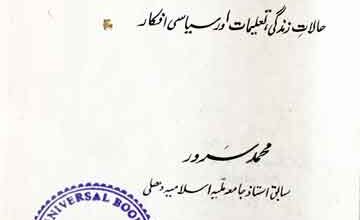 حالاتِ زندگی، تعلیمات اور سیاسی افکار
محمد سرور
سابق استاذ جامعہ ملیہ اسلامیہ دہلی
UNIVERSAL BOOK